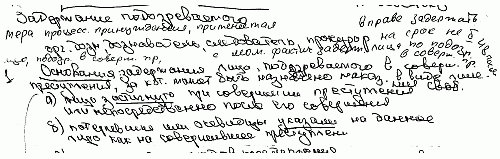 Задержание подозреваемого
мера процесс. принуждения, применяемая
вправе задержать
орг. дозн. дознаватель, следователь, прокурор на срок не б
с мом. фактич. задерж. лица по подозр.
в соверш. пр.
Основания задержания лица, подозреваемого в соверш. пр.
преступления, за кот. может быть назначено наказ. в виде лише-
ния своб.
а) лицо застигнуто при совершении преступления
или непосредственно после его совершения
б) потерпевшие или очевидцы указали на данное
лицо как на совершившее преступление